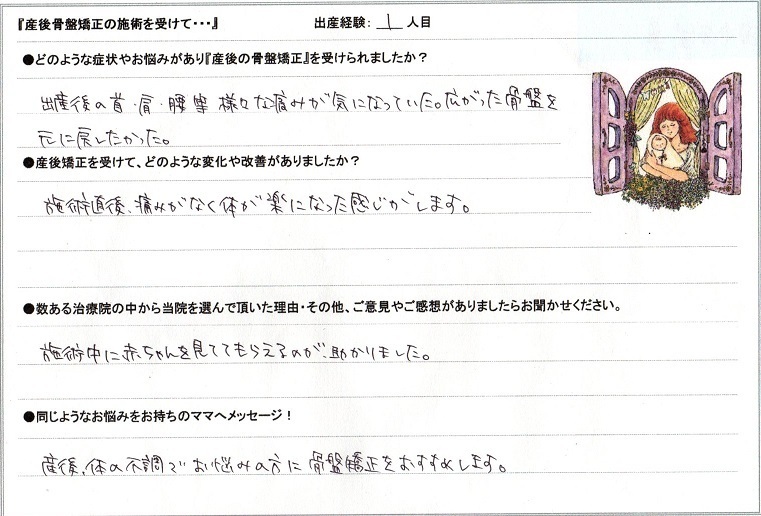 『産後骨盤矯正の施術を受けて・・・』 出産経験： 1 人目
●どのような症状やお悩みがあり『産後の骨盤矯正』を受けられましたか？
出産後の首・肩・腰等様々な痛みが気になっていた。広がった骨盤を
元に戻したかった。
●産後矯正を受けて、どのような変化や改善がありましたか？
施術直後、痛みがなく体が楽になった感じがします。
●数ある治療院の中から当院を選んで頂いた理由・その他、ご意見やご感想がありましたらお聞かせください。
施術中に赤ちゃんを見ててもらえるのが、助かりました。
●同じようなお悩みをお持ちのママへメッセージ！
産後、体の不調でお悩みの方に骨盤矯正をおすすめします。